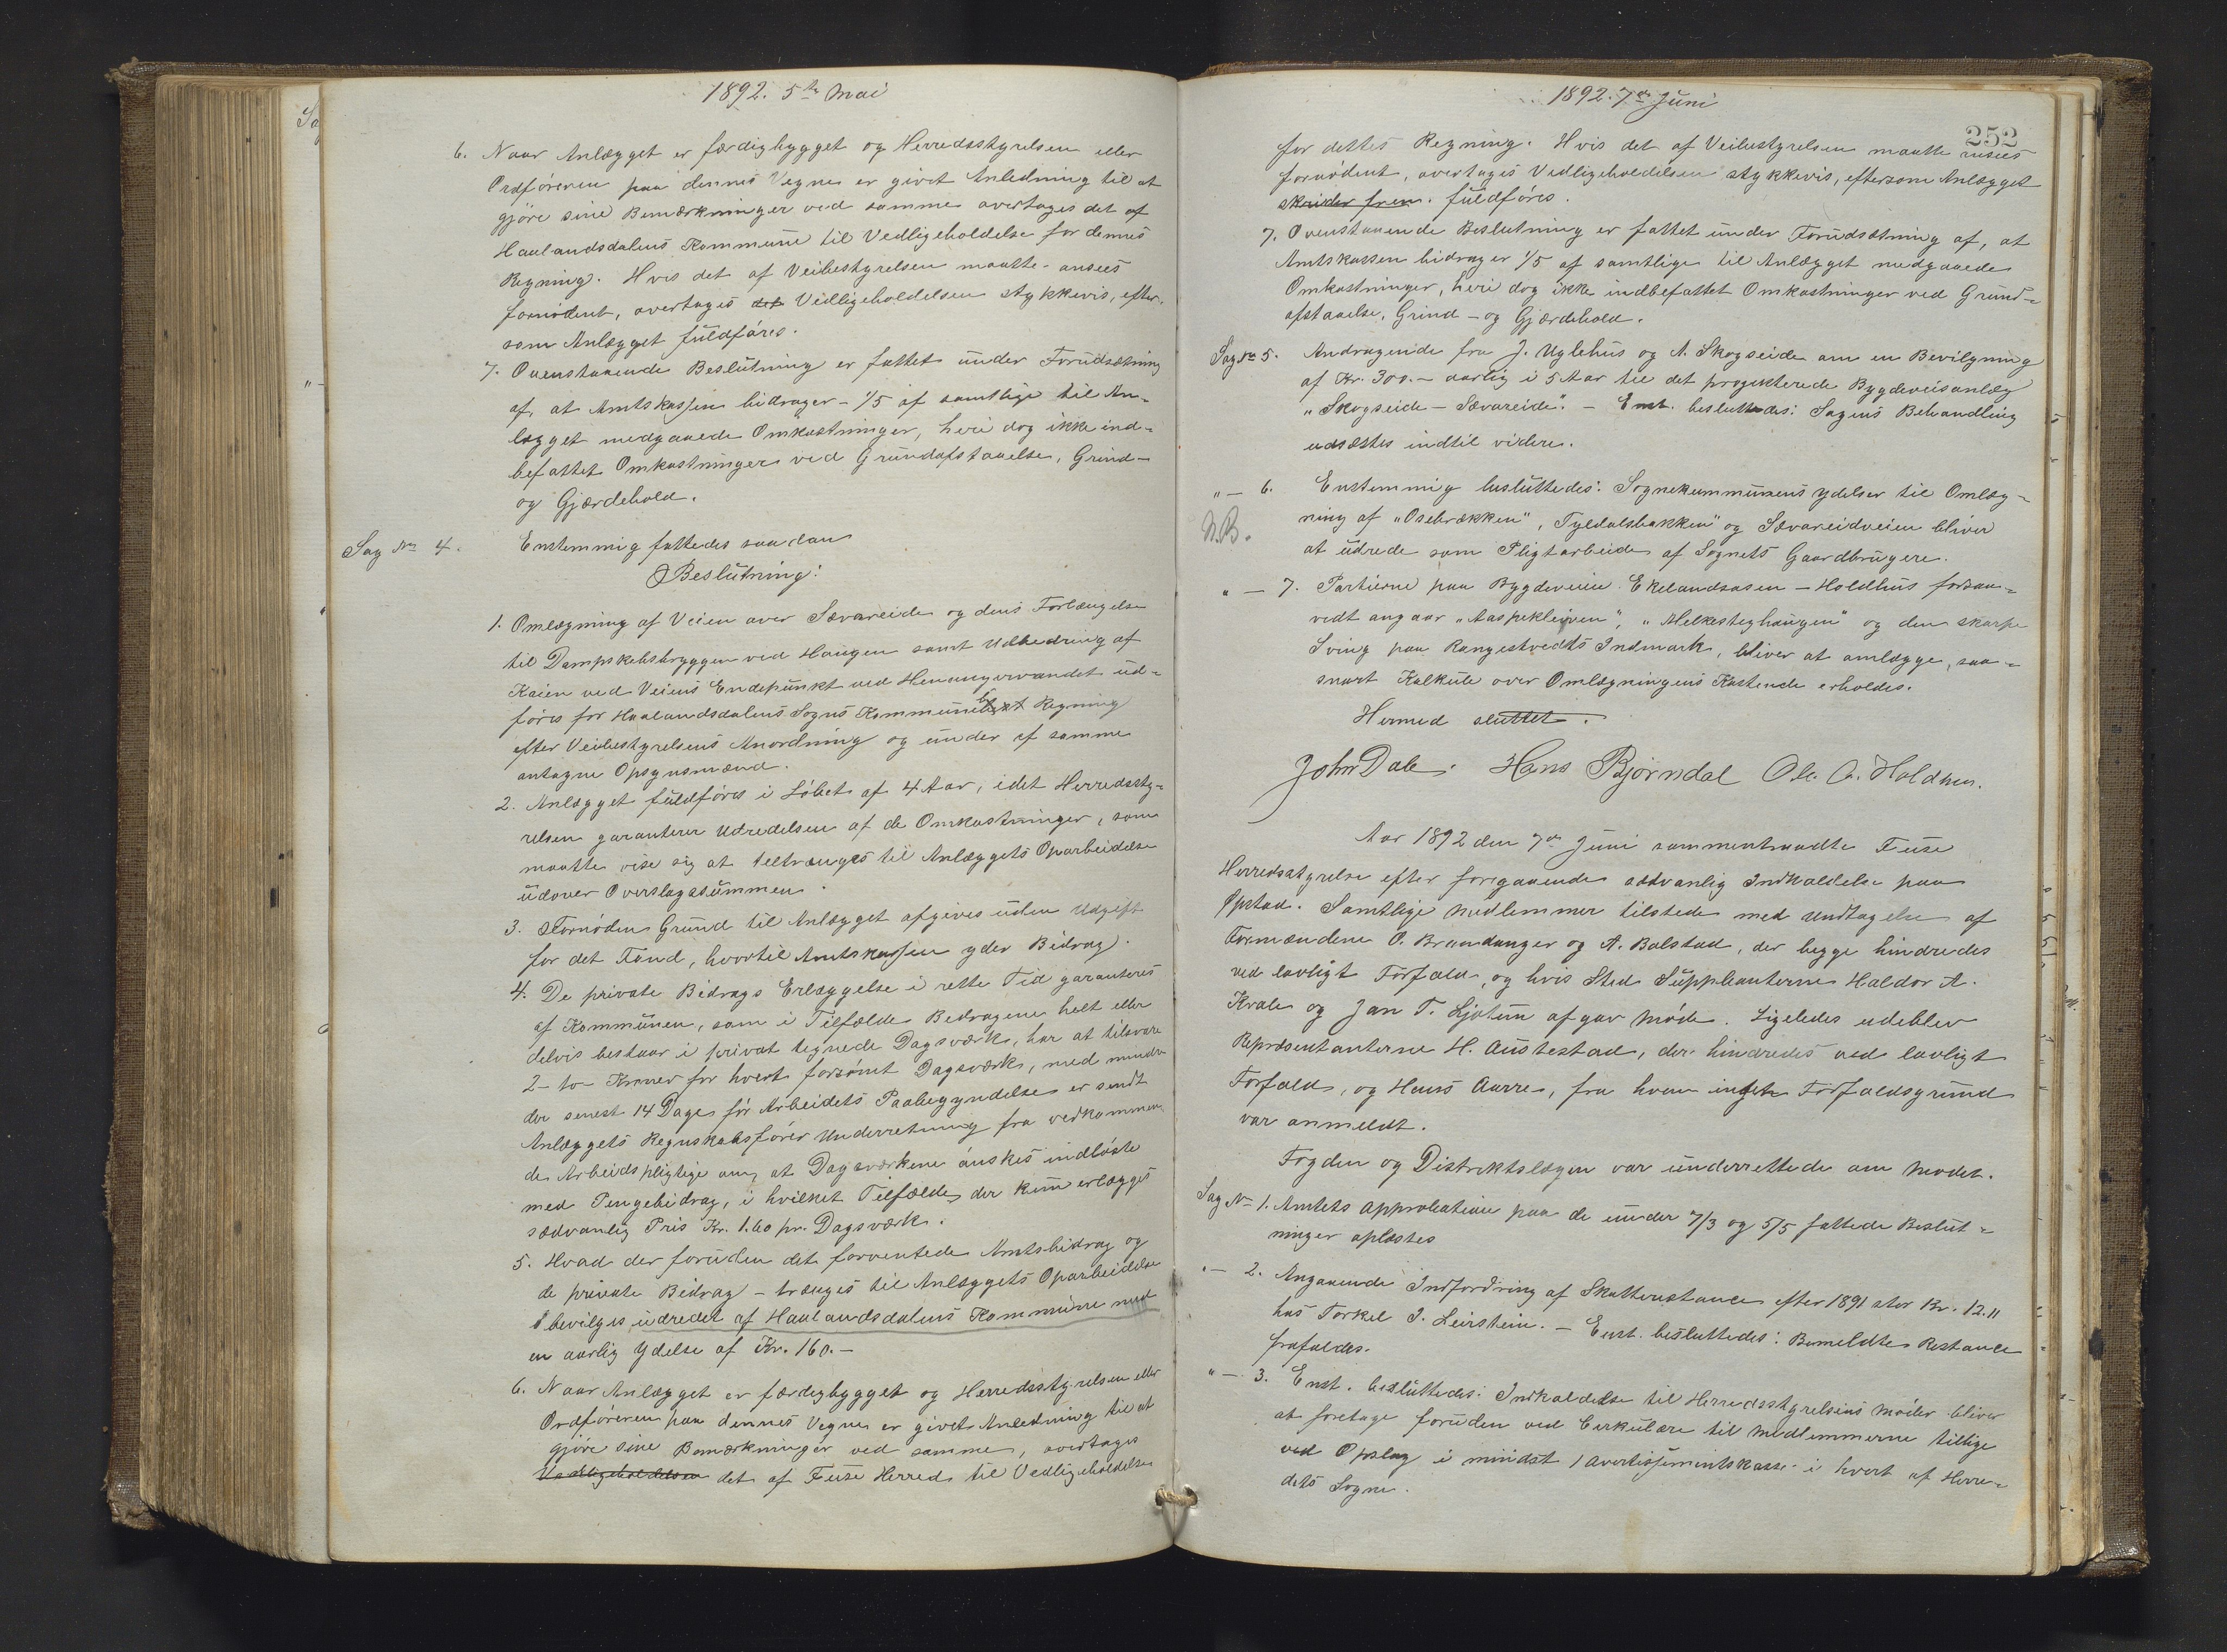 1892. 5te Mai
6. Naar Anlægget er færdigbygget og Herredsstyrelsen eller
Ordføreren paa dennes Vegne er givet Anledning til at
gjöre sine Bemærkninger ved samme overtages det af
Haalandsdalens Kommune til Vedligeholdelse for dennes
Regning. Hvis det af Veibestyrelsen maatte ansees
fornödent, overtages det Vedligeholdelsen stykkevis, efter-
som Anlægget fuldføres.
7. Ovenstaaende Beslutning er fattet under Forudsætning
af, at Amtskassen bidrager - 1/5 af samtlige til An-
lægget medgaaede Omkostninger, heri dog ikke ind-
befattet Omkostninger ved Grundafstaaelse, Grind-
og Gjærdehold.
Sag No 4. Enstemmig fattedes saadan
Beslutning:
1. Omlægning af Veien over Sævareide og dens Forlængelse
til Dampskibsbryggen ved Haugen samt Udbedring af
Kaien ved Veiens Endepunkt ved Henangervandet ud-
føres for Haalandsdalens Sogns Kommunes Regning
efter Veibestyrelsens Anordning og under af samme
antagne Opsynsmænd.
2. Anlægget fuldføres i Löbet af 4 Aar, idet Herredssty-
relsen garanterer Udredelsen af de Omkostninger, som
maatte vise sig at tiltrænges til Anlæggets Oparbeidelse
udover Overslagssummen.
3. Fornöden Grund til Anlægget afgives uden Udgift
for det Fond, hvortil Amtskassen yder Bidrag.
4. De private Bidrags Erlæggelse i rette Tid garanteres
af Kommunen, som i Tilfælde Bidragene helt eller
delvis bestaar i privat tegnede Dagsværk, har at tilsvare
2 - to - Kroner for hvert forsömt Dagsværk, med mindre
der senest 14 Dage før Arbeidets Paabegyndelse er sendt
Anlæggets Regnskabsfører Underretning fra vedkommen-
de Arbeidspligtige om, at Dagsværkene önskes indløste
med Pengebidrag, i hvilket Tilfælde der kun erlægges
sædvanlig Pris Kr. 1.60 pr. Dagsværk.
5. Hvad der foruden det forventede Amtsbidrag og
de private Bidrag - trænges til Anlæggets Oparbeidelse
bevilges udredet af Haalandsdalens Kommune med
en aarlig Ydelse af Kr. 160.-
6. Naar Anlægget er færdigbygget og Herredsstyrelsen eller
Ordföreren paa dennes Vegne er givet Anledning til at
gjöre sine Bemærkninger ved samme, overtages
Vedligeholdelsen det af Fuse Herred til Vedligeholdelse
1892. 7de Juni
252
for dettes Regning. Hvis det af Veibestyrelsen maatte ansees
fornödent, overtages Vedligeholdelsen stykkevis, eftersom Anlægget
skrider frem. fuldføres.
7. Ovenstaaende Beslutning er fattet under Forudsætning af, at
Amtskassen bidrager 1/5 af samtlige til Anlægget medgaaede
Omkostninger, heri dog ikke indbefattet Omkostninger ved Grund-
afstaaelse, Grind- og Gjærdehold.
Sag No 5. Andragende fra J. Uglehus og A. Skogseide om en Bevilgning
af Kr. 300.- aarlig i 5 Aar til det projekterede Bygdeveisanlæg
"Skogseide - Sævareide". - Enst. besluttedes: Sagens Behandling
udsættes indtil videre.
" - 6. Enstemmig besluttedes: Sognekommunens Ydelser til Omlæg-
N.B.
ning af "Osebrækken", Tyedalsbakken" og Sævareidveien bliver
at udrede som Pligtarbeide af Sognets Gaardbrugere.
" - 7. Partierne paa Bygdeveien Ekelandsosen - Holdhus forsaa-
vedt angaar "Aaspekleiven", "Melkesteghaugen" og den skarpe
Sving paa Rangestvedts Indmark, bliver at omlægge, saa-
snart Kalkule over Omlægningens Kostende erholdes.
Hermed sluttet.
John Dale. Hans Bjørndal Ole A. Holdhus.
Aar 1892 den 7de Juni sammentraadte Fuse
Herredsstyrelse efter foregaaende sædvanlig Indkaldelse paa
Opstad. Samtlige Medlemmer tilstede med Undtagelse af
Formændene O. Brandanger og A. Bolstad, der begge hindredes
ved lovligt Forfald, og hvis Sted Suppleanterne Haldor A.
Kvale og Jan T. Ljotun afgav Møde. Ligeledes udeblev
Repræsentanterne H. Austestad, der hindredes ved lovligt
Forfald, og Hans Aarre, fra hvem intet Forfaldsgrund
var anmeldt.
Fogden og Distriktslægen var underrettede om Mödet.
Sag No 1. Amtets Approbation paa de under 7/3 og 5/5 fattede Beslut-
ninger oplæstes
" - 2. Angaaende Indfordring af Skatterestance efter 1891 stor Kr. 12.11
hos Torkel J. Leirstein. - Enst. besluttedes: Bemeldte Restance
frafaldes.
" - 3. Enst. besluttedes: Indkaldelse til Herredsstyrelsens Möder bliver
at foretage foruden ved Cirkulære til Medlemmerne tillige
ved Opslag i mindst 1 Avertissementskasse i hvert af Herre-
dets Sogne.